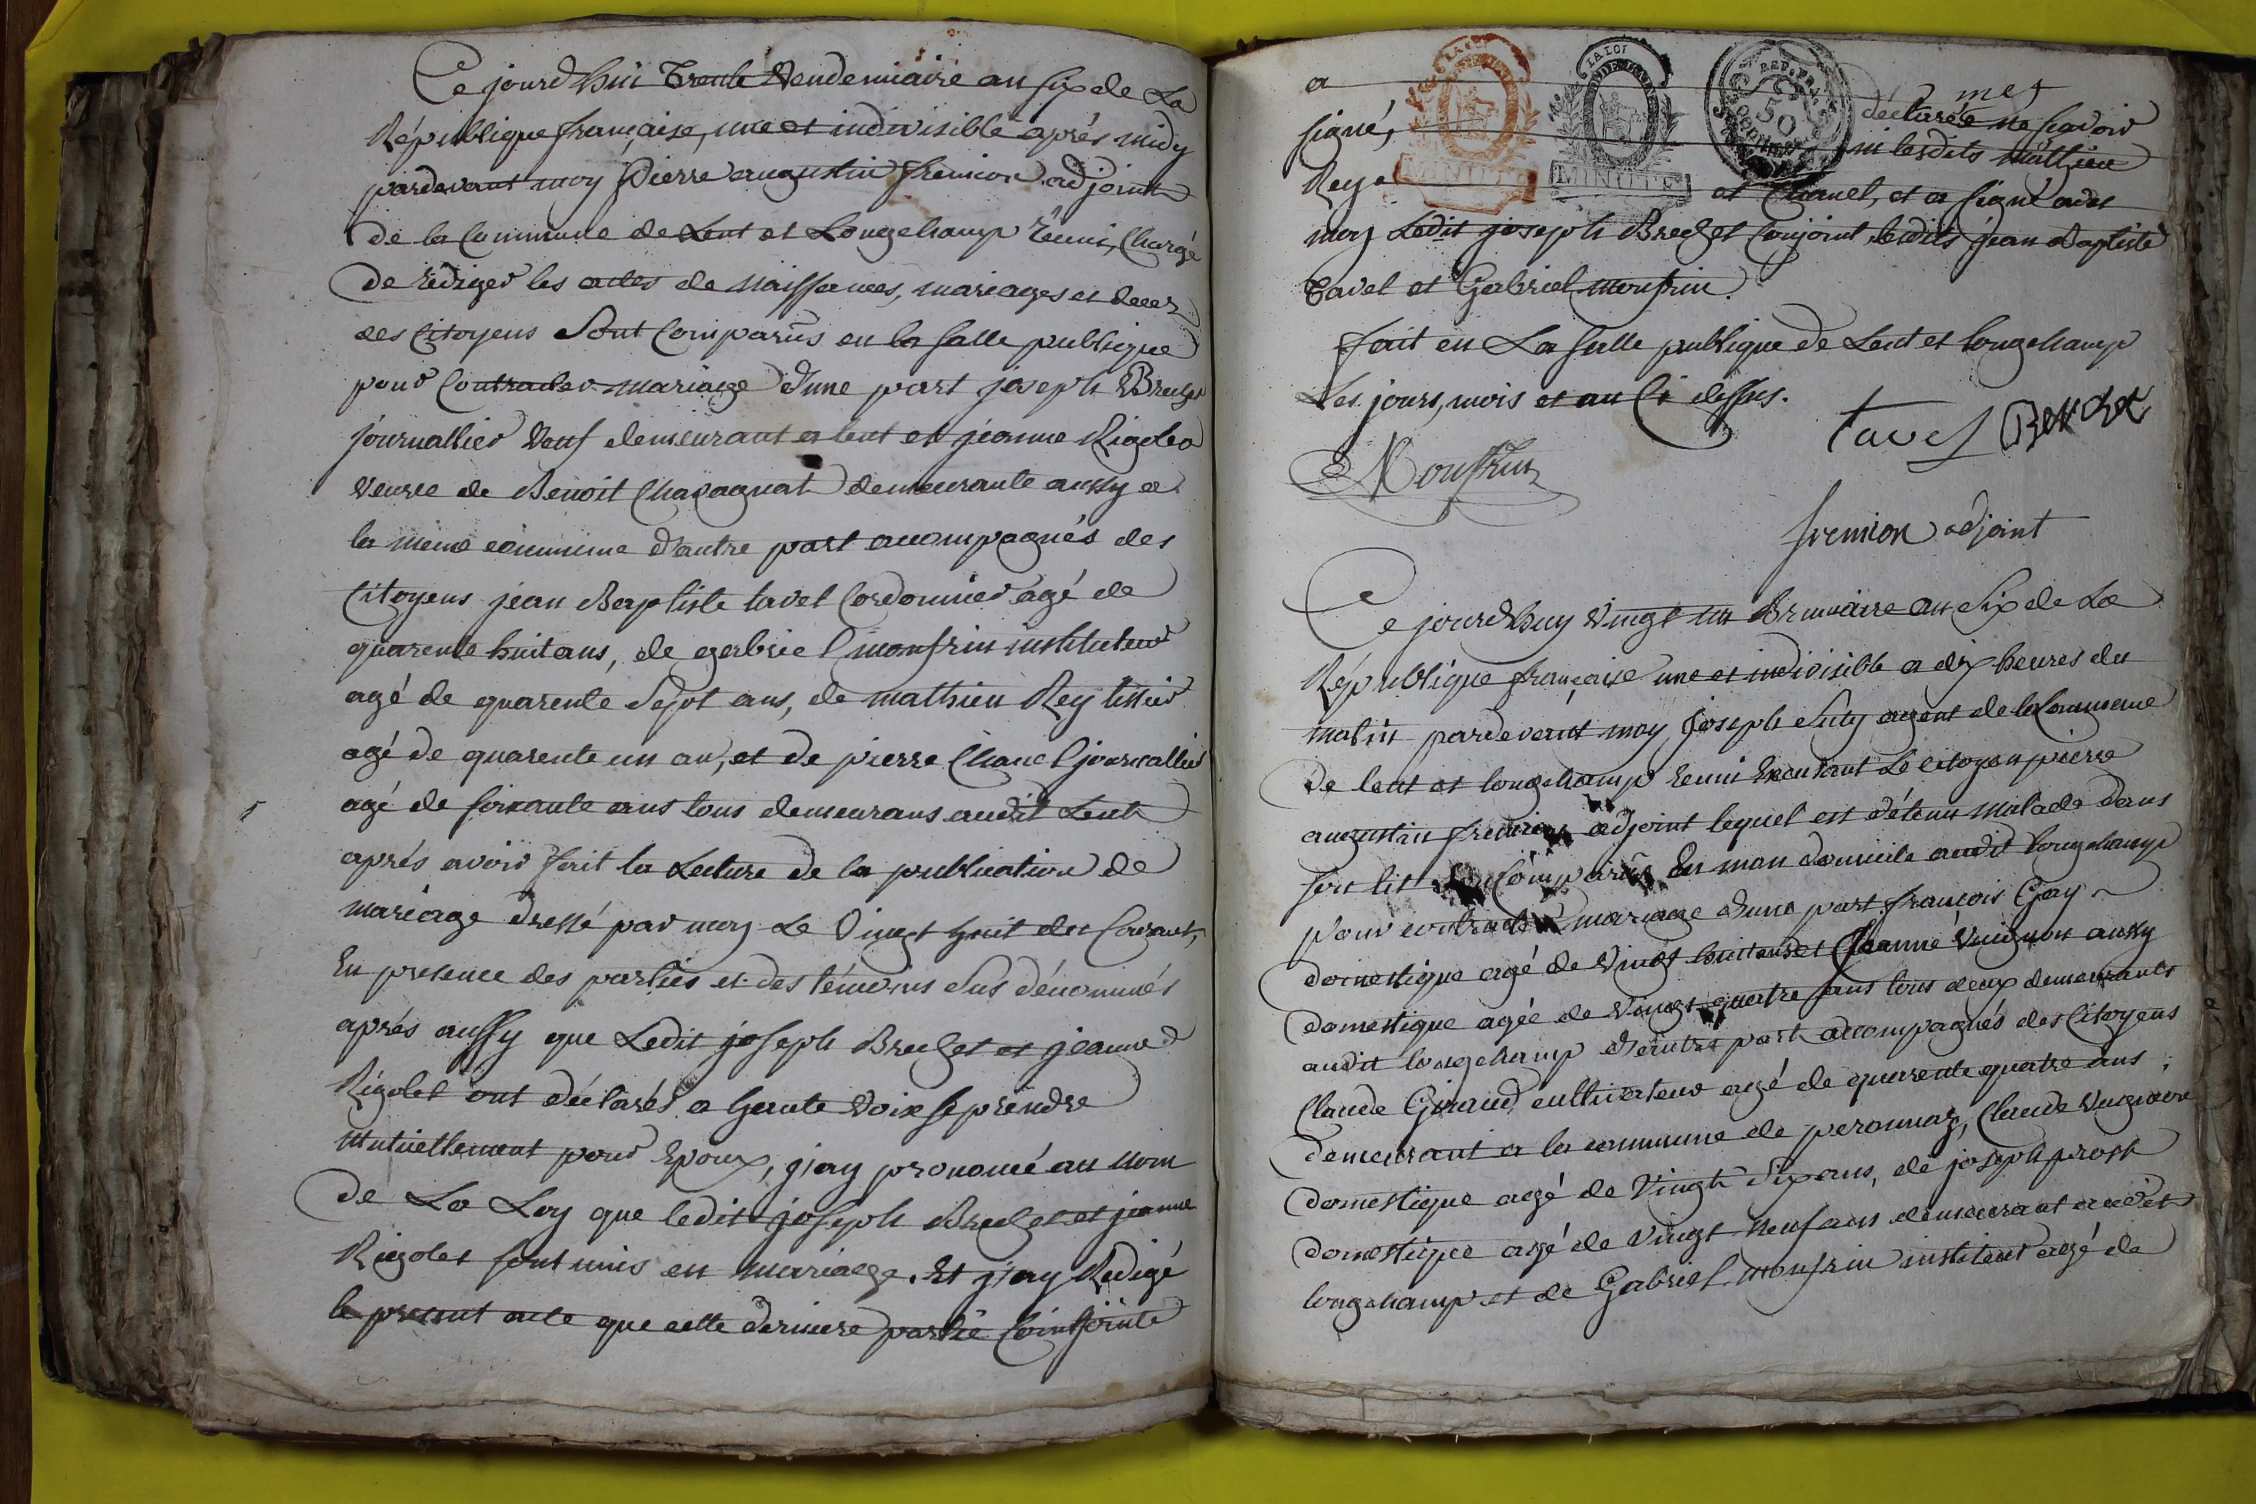 Ce jourd'huit trente Vendemiaire an six de La
République française, une et indivisible aprés midy
pardevant moy pierre augustin fremion adjoint
de la Commune de Lent et Longchamp réuni, Chargé
de rédiger les actes de Naissances, mariages et deces
des Citoyens Sont Comparus en la salle publique
pour Contracter mariage d'une part joseph Brechet
journallier veuf demeurant a lent et jeanne Rigolet
veuve de Benoit Chavagnat demeurante aussy a
la même commune d'autre part accompagnés des
Citoyens jean Baptiste tavel Cordonnier agé de
quarente huit ans, de gabriel monfrin instituteur
agé de quarente Sept ans, de mathieu Rey tissier
agé de quarente un an, et de pierre Chanel journallier
agé de soixante ans tous demeurans audit Lent
aprés avoir fait la Lecture de la publication de
mariage dressé par moy Le Vingt huit du Courant,
En presence des parties et des témoins Sus dénommés
aprés aussy que Ledit joseph Brechet et jeanne
Rigolet ont déclarés a haute voix se prendre
Mutuellement pour Epoux, j'ay prononcé au nom
de La Loy que ledit joseph Brechet et jeanne
Rigolet sont unis en mariage. Et j'ay Rédigé
le present acte que cette derniere partie Conjointe
a mes
signé, déclarée ne scavoir
Rey ni lesdits Mathieu
et Chanel, et a signé avec
moy Ledit joseph Brechet Conjoint, lesdits jean Baptiste
tavel et Gabriel monfrin.
fait en La salle publique de Lent et longchamp
Les jours, mois et an Ci dessus.
tavel Brechet
Monfrin
fremion adjoint
Ce jourd'huy vingt un Brumaire an Six de La
République française une et indivisible a dix heures du
matin pardevant moy joseph Suty agent de la Commune
de lent et longchamp reuni Excusant Le citoyen pierre
augustin fremion adjoint lequel est détenu malade dans
son lit Sont Comparus En mon domicile audit longchamp
pour contracter mariage d'une part francois Gay
domestique agé de Vingt huit ans et Jeanne Vuignon aussy
domestique agée de Vingt quatre ans tous deux demeurants
audit longchamp d'autre part accompagnés des Citoyens
Claude Giraud cultivateur agé de quarente quatre ans
demeurant a la commune de peronnaz, Claude Vuignon
domestique agé de Vingt Six ans, de joseph prost
domestique agé de Vingt Neuf ans demeurant audit
longchamp et de Gabriel monfrin institeut agé de
LA LOI
MINUTE
LA LOI
MINUTE
REP. FRA.
50